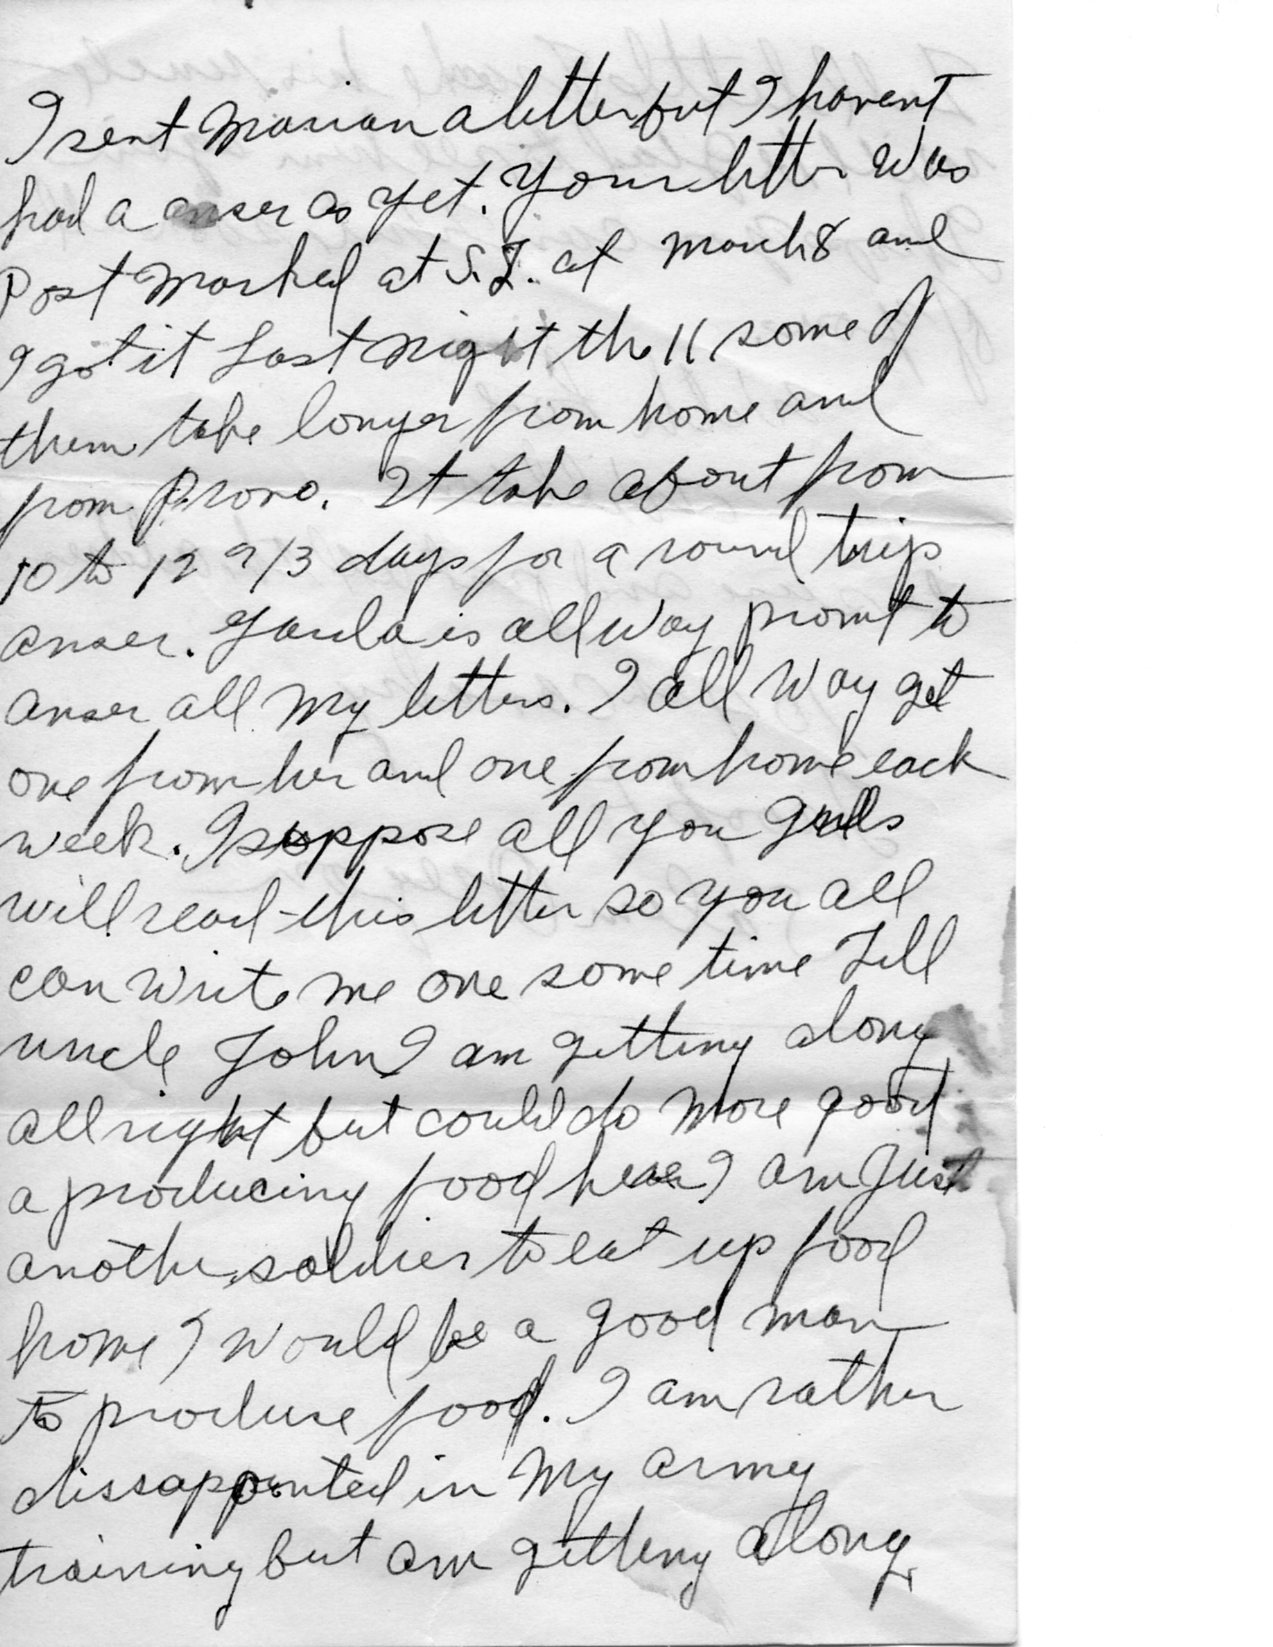 I sent Marian a letter but I havent
had a anser as yet. Your letter was
Post Marked at S.L. at March 8 and
I got it Last night the 11 some of
them take longer from home and
from Provo. It take about from
10 to 12 or 13 days for a round trip
anser. is all way promt to
anser all my letters. I all way get
one from her and one from home each
week. I suppose all you
will read this letter so you all
can write me one some time Tell
uncle John I am getting along
all right but could do more good
a producing food here I am Just
another soldier to eat up food
home I would be a good man
to produce food. I am rather
dissappointed in my army
training but am getting along